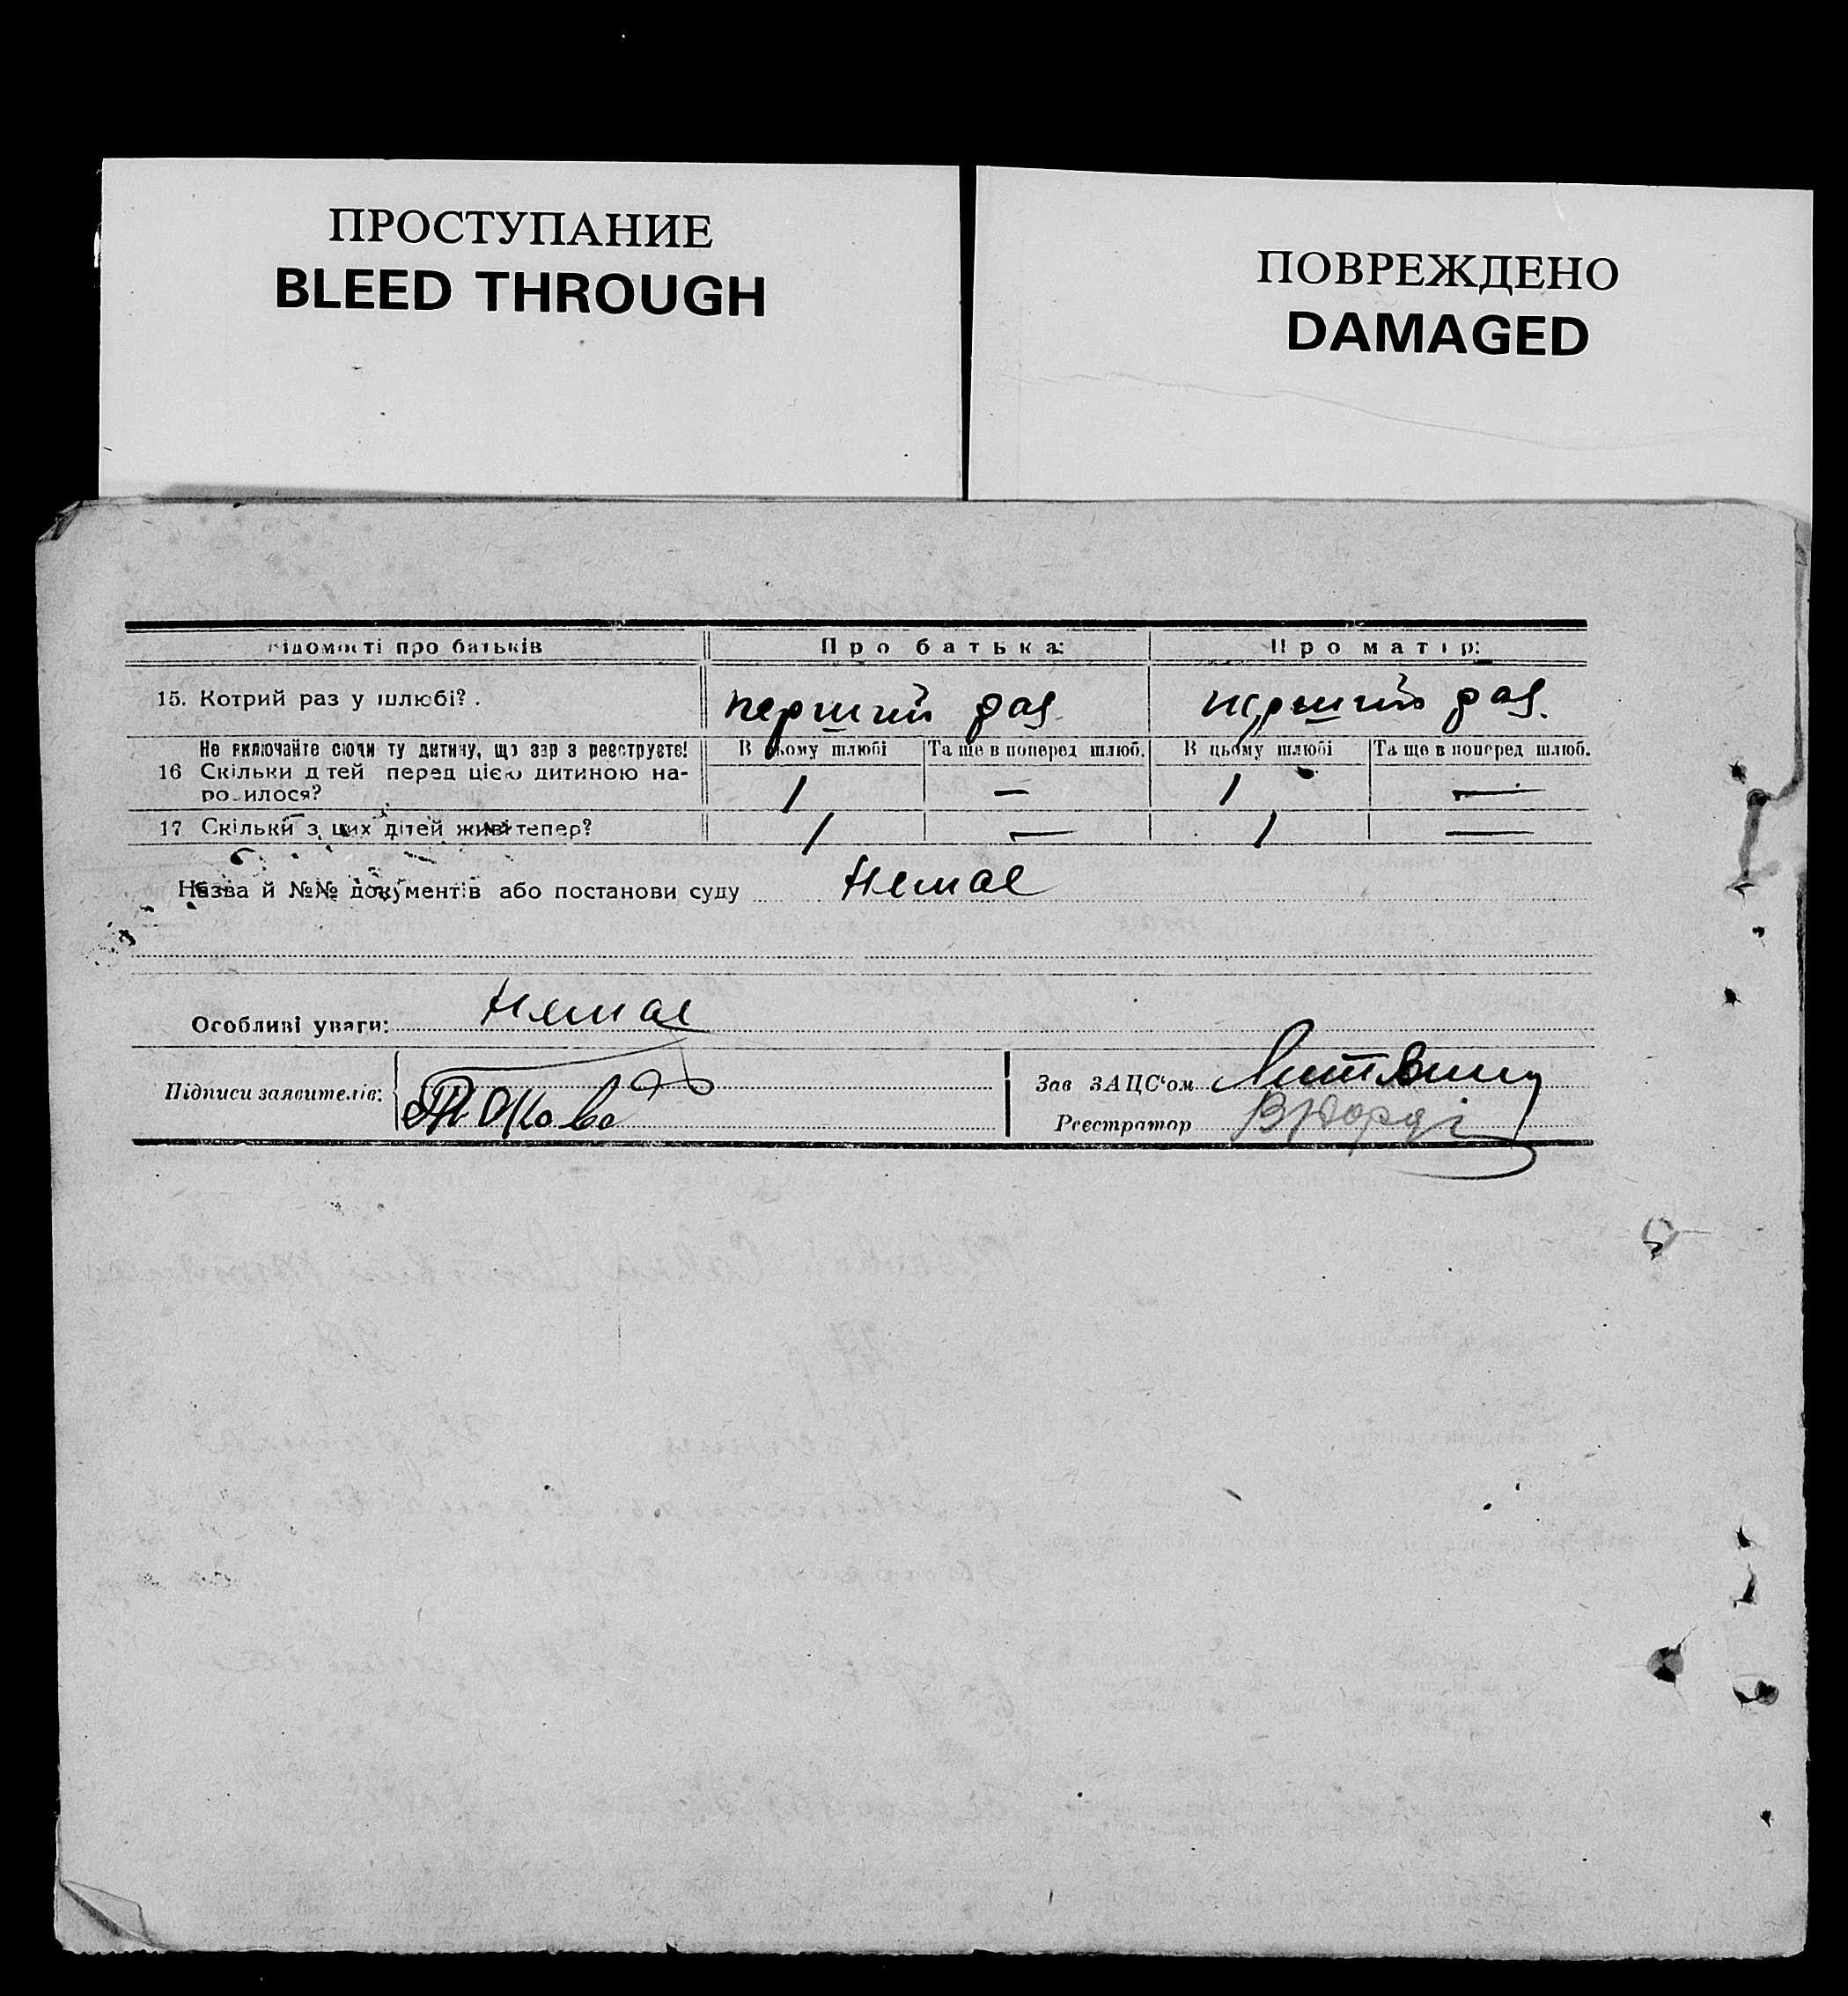 ПРОСТУПАНИЕ
BLEED THROUGH
ПОВРЕЖДЕНО
DAMAGED
ідомості про батьків Про батька: Про матір:
15. Котрий раз у шлюбі? . перший раз перший раз.
Не включайте сюди ту дитину, що зар з реєструєте! В цьому шлюбі Та ще в поперед шлюб. В цьому шлюбі Та ще в поперед шлюб.
16 Скільки д тей перед цією дитиною на-
ро илося? 1 — 1 —
17 Скільки з цих дітей живі тепер? 1 — 1 —
Назва й №№ документів або постанови суду Немає
Особливі уваги: Немає
Підписи заявителів: Зав ЗАЦС‘ом Литвин
Реєстратор